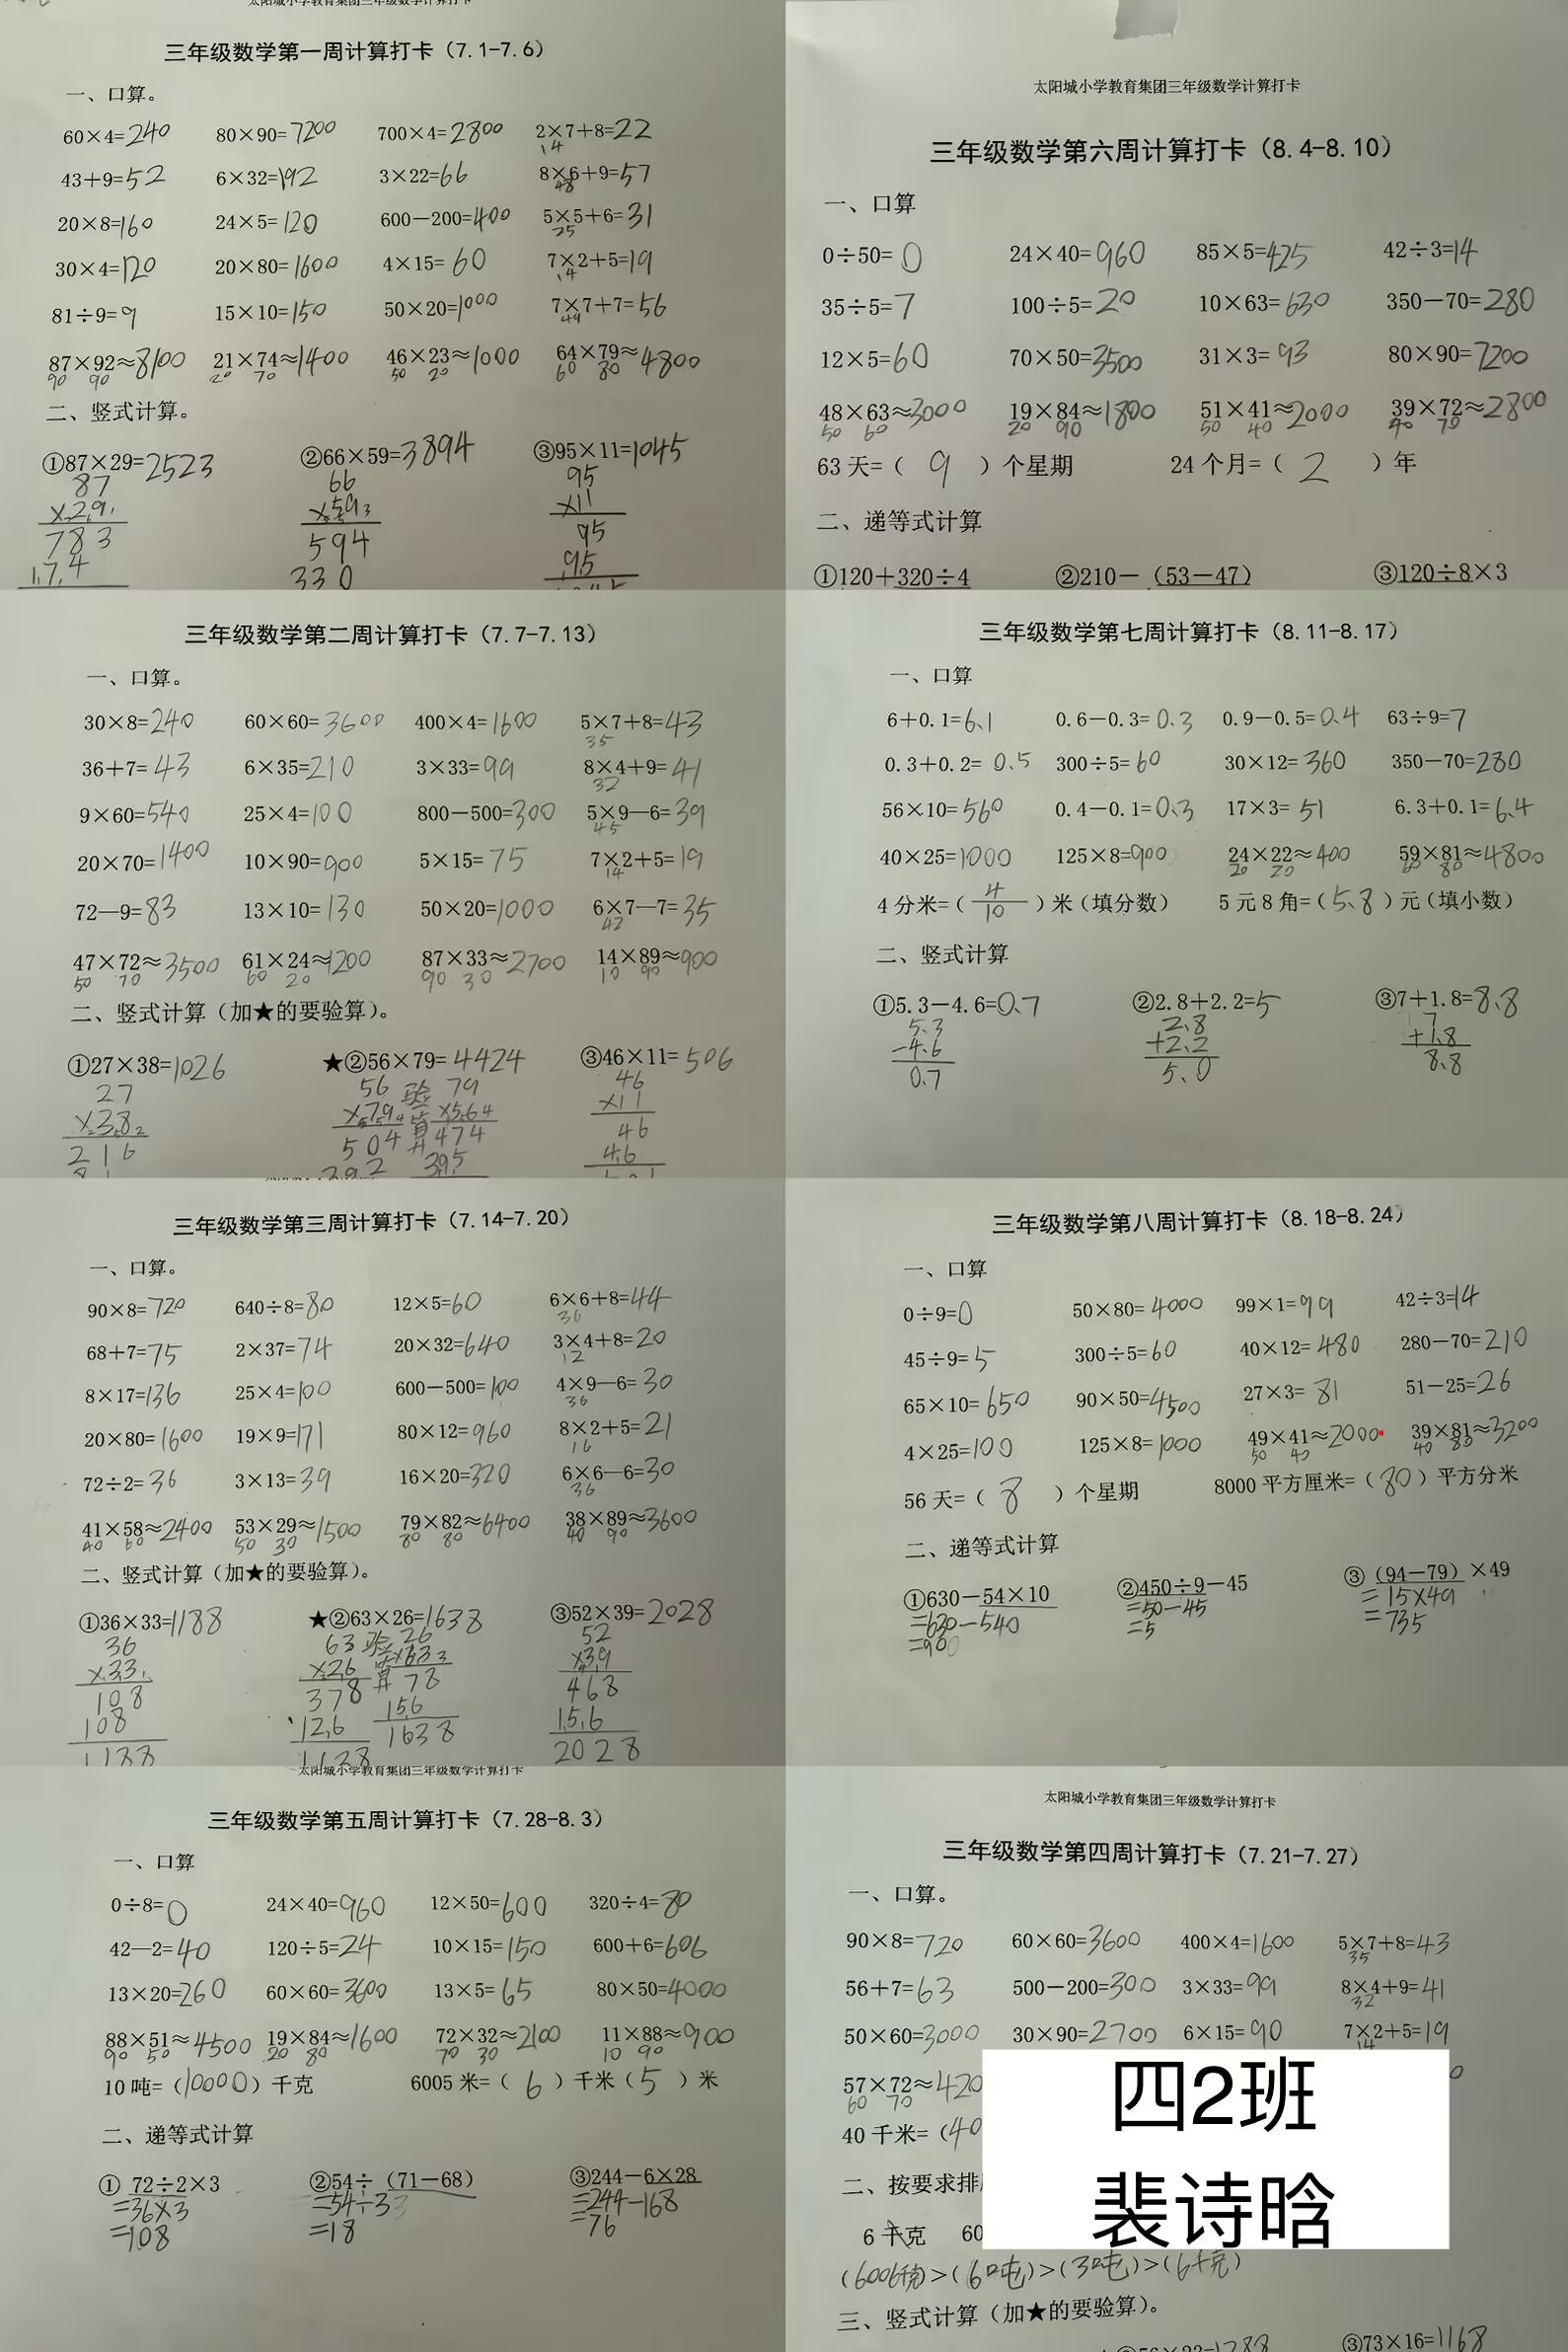 太阳城小学教育集团三年级数学计算打卡
三年级数学第一周计算打卡（7.1-7.6）
一、口算。
60×4=240 80×90=7200 700×4=2800 2×7+8=22
14
43+9=52 6×32=192 3×22=66 8×6+9=57
48
20×8=160 24×5=120 600-200=400 5×5+6=31
25
30×4=120 20×80=1600 4×15=60 7×2+5=19
14
81÷9=9 15×10=150 50×20=1000 7×7+7=56
49
87×92≈8100 21×74≈1400 46×23≈1000 64×79≈4800
90 90 20 70 50 20 60 80
二、竖式计算。
①87×29=2523 ②66×59=3894 ③95×11=1045
87 66 95
×29 ×59 ×11
783 594 95
174 330 95
三年级数学第二周计算打卡（7.7-7.13）
一、口算。
30×8=240 60×60=3600 400×4=1600 5×7+8=43
35
36+7=43 6×35=210 3×33=99 8×4+9=41
32
9×60=540 25×4=100 800-500=300 5×9-6=39
45
20×70=1400 10×90=900 5×15=75 7×2+5=19
14
72-9=83 13×10=130 50×20=1000 6×7-7=35
42
47×72≈3500 61×24≈1200 87×33≈2700 14×89≈900
50 70 60 20 90 30 10 90
二、竖式计算（加★的要验算）。
①27×38=1026 ★②56×79=4424 ③46×11=506
27 56 验算 79 46
×38 ×79 ×56 ×11
216 504 474 46
392 395 46
三年级数学第三周计算打卡（7.14-7.20）
一、口算。
90×8=720 640÷8=80 12×5=60 6×6+8=44
36
68+7=75 2×37=74 20×32=640 3×4+8=20
12
8×17=136 25×4=100 600-500=100 4×9-6=30
36
20×80=1600 19×9=171 80×12=960 8×2+5=21
16
72÷2=36 3×13=39 16×20=320 6×6-6=30
36
41×58≈2400 53×29≈1500 79×82≈6400 38×89≈3600
40 60 50 30 80 80 40 90
二、竖式计算（加★的要验算）。
①36×33=1188 ★②63×26=1638 ③52×39=2028
36 63 验算 26 52
×33 ×26 ×63 ×39
108 378 78 468
108 126 156 156
1188 1638 1638 2028
太阳城小学教育集团三年级数学计算打卡
三年级数学第五周计算打卡（7.28-8.3）
一、口算
0÷8=0 24×40=960 12×50=600 320÷4=80
42-2=40 120÷5=24 10×15=150 600+6=606
13×20=260 60×60=3600 13×5=65 80×50=4000
88×51≈4500 19×84≈1600 72×32≈2100 11×88≈900
90 50 20 80 70 30 10 90
10吨=（10000）千克 6005米=（6）千米（5）米
二、递等式计算
①72÷2×3 ②54÷（71-68） ③244-6×28
=36×3 =54÷3 =244-168
=108 =18 =76
太阳城小学教育集团三年级数学计算打卡
三年级数学第六周计算打卡（8.4-8.10）
一、口算
0÷50=0 24×40=960 85×5=425 42÷3=14
35÷5=7 100÷5=20 10×63=630 350-70=280
12×5=60 70×50=3500 31×3=93 80×90=7200
48×63≈3000 19×84≈1800 51×41≈2000 39×72≈2800
50 60 20 90 50 40 40 70
63天=（9）个星期 24个月=（2）年
二、递等式计算
①120+320÷4 ②210-（53-47） ③120÷8×3
三年级数学第七周计算打卡（8.11-8.17）
一、口算
6+0.1=6.1 0.6-0.3=0.3 0.9-0.5=0.4 63÷9=7
0.3+0.2=0.5 300÷5=60 30×12=360 350-70=280
56×10=560 0.4-0.1=0.3 17×3=51 6.3+0.1=6.4
40×25=1000 125×8=900 24×22≈400 59×81≈4800
20 20 60 80
4分米=（4/10）米（填分数） 5元8角=（5.8）元（填小数）
二、竖式计算
①5.3-4.6=0.7 ②2.8+2.2=5 ③7+1.8=8.8
5.3 2.8 7
-4.6 +2.2 +1.8
0.7 5.0 8.8
三年级数学第八周计算打卡（8.18-8.24）
一、口算
0÷9=0 50×80=4000 99×1=99 42÷3=14
45÷9=5 300÷5=60 40×12=480 280-70=210
65×10=650 90×50=4500 27×3=81 51-25=26
4×25=100 125×8=1000 49×41≈2000 39×81≈3200
50 40 40 80
56天=（8）个星期 8000平方厘米=（80）平方分米
二、递等式计算
①630-54×10 ②450÷9-45 ③（94-79）×49
=630-540 =50-45 =15×49
=90 =5 =735
太阳城小学教育集团三年级数学计算打卡
三年级数学第四周计算打卡（7.21-7.27）
一、口算。
90×8=720 60×60=3600 400×4=1600 5×7+8=43
35
56+7=63 500-200=300 3×33=99 8×4+9=41
32
50×60=3000 30×90=2700 6×15=90 7×2+5=19
14
57×72≈420
60 70
40千米=（40
二、按要求排
6千克 60
（6006千克）>（60吨）>（30吨）>（6千克）
三、竖式计算（加★的要验算）。
③73×16=1168
四2班
裴诗晗